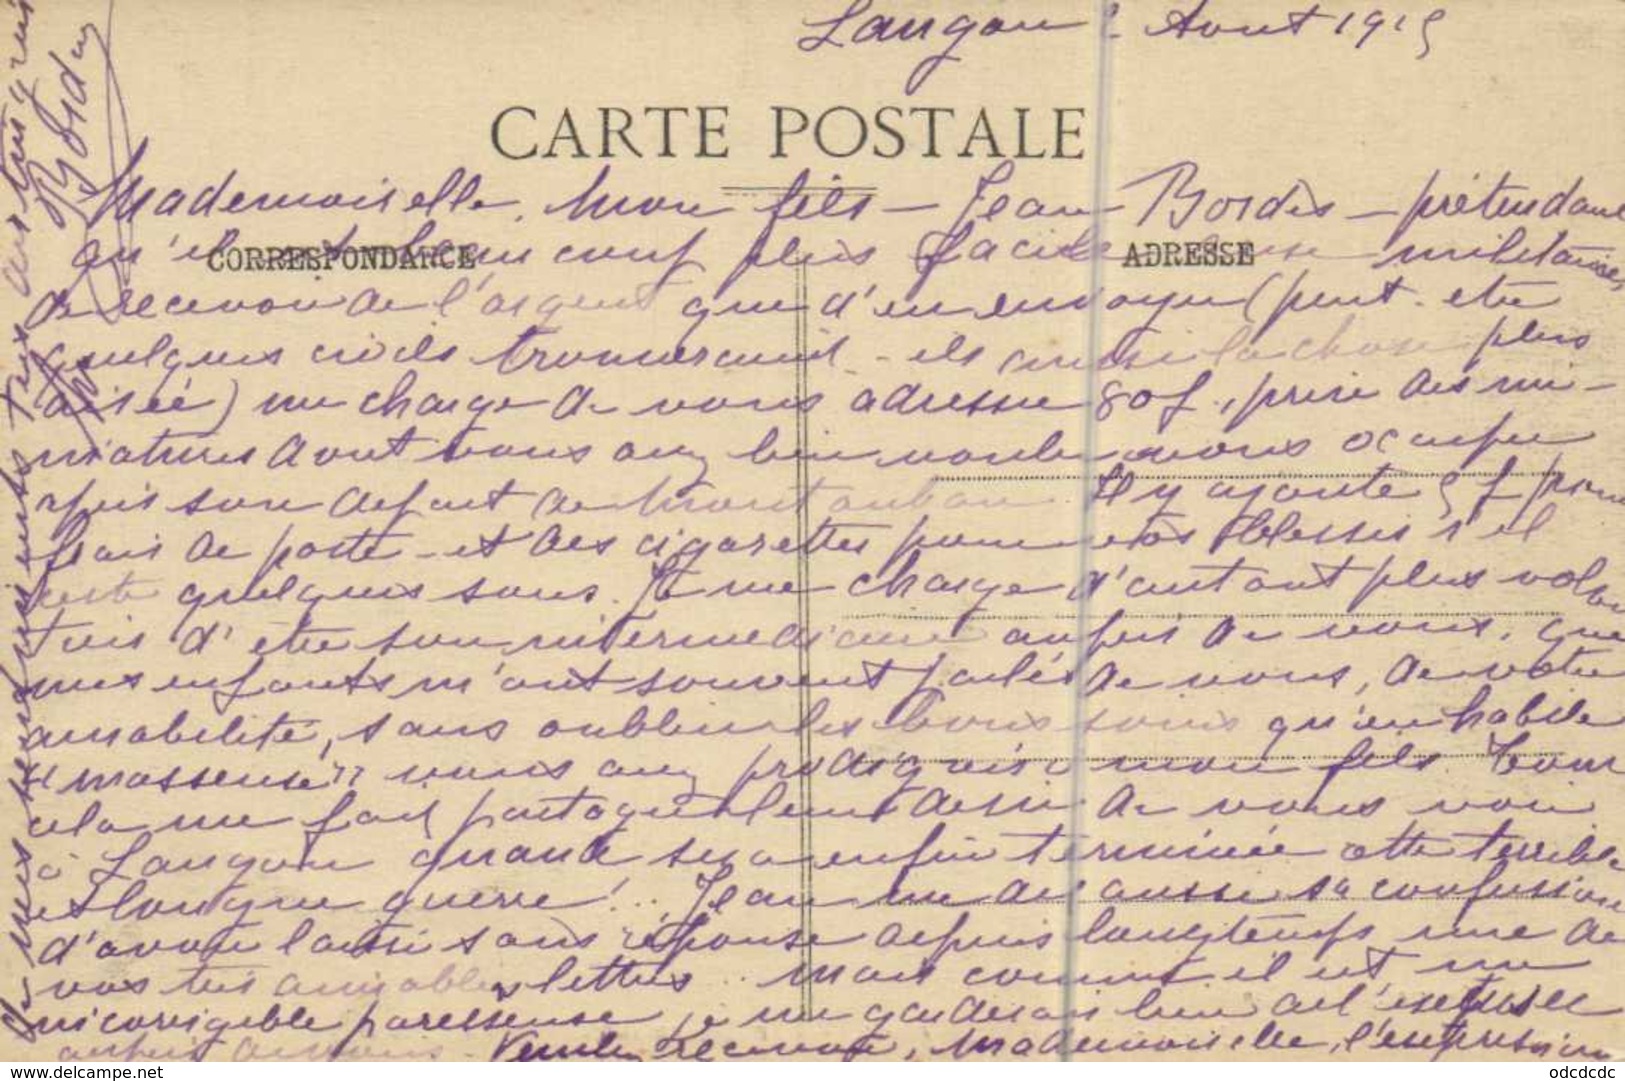 Langon 2 Aout 1915
CARTE POSTALE
Mademoiselle. Mon fils – Jean Bordes – prétendant
CORRESPONDANCE
ADRESSE
qu'il est beaucoup plus facile militaires
de recevoir de l'argent que d'en envoyer (peut-être
quelques civils trouveraient-ils aussi la chose plus
aisée) me charge de vous adresser 80f, prix des mi-
niatures dont vous avez bien voulu vous occuper
depuis son départ de Montauban. Il y ajoute 5f pour
frais de poste – et des cigarettes pour vos blessés s'il
reste quelques sous. Je me charge d'autant plus volon
tiers d'être son intermédiaire auprès de vous, que
mes enfants m'ont souvent parlés de vous, de votre
amabilité, sans oublier les bons soins qu'en habile
"masseuse" vous avez prodigués à mon fils. Tout
cela me fait partager leur désir de vous voir
à Langon quand sera enfin terminée cette terrible
et longue guerre!.. Jean me dit aussi sa confusion
d'avoir laissé sans réponse depuis longtemps une de
vos très aimables lettres.. Mais comme il est un
incorrigible paresseux je me garderais bien de l'excuser
auprès de vous. Veuillez recevoir, Mademoiselle, l'expression
de mes sentiments
Bordes
delcampe.net
odcdcdc